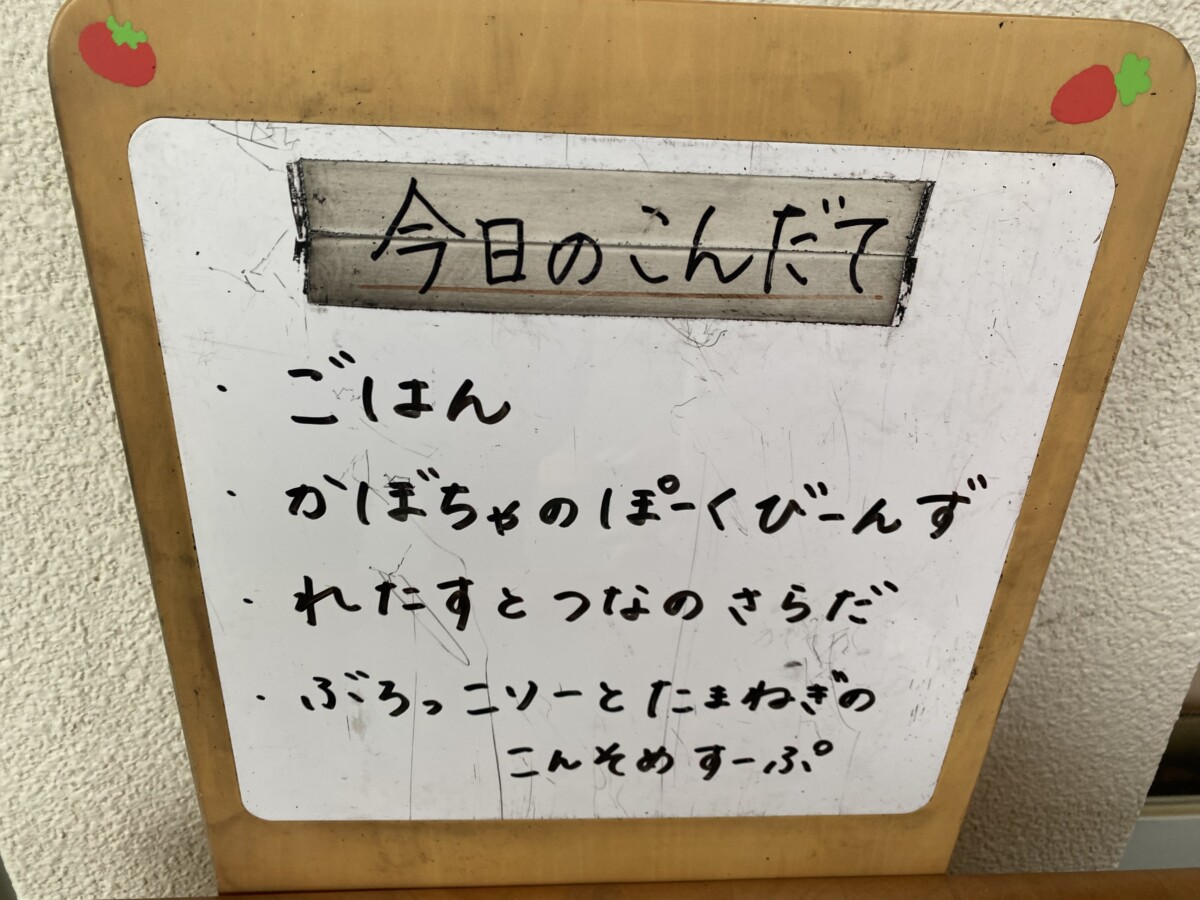 今日のこんだて
・ごはん
・かぼちゃのぽーくびーんず
・れたすとつなのさらだ
・ぶろっこりーとたまねぎの
こんそめすーぷ